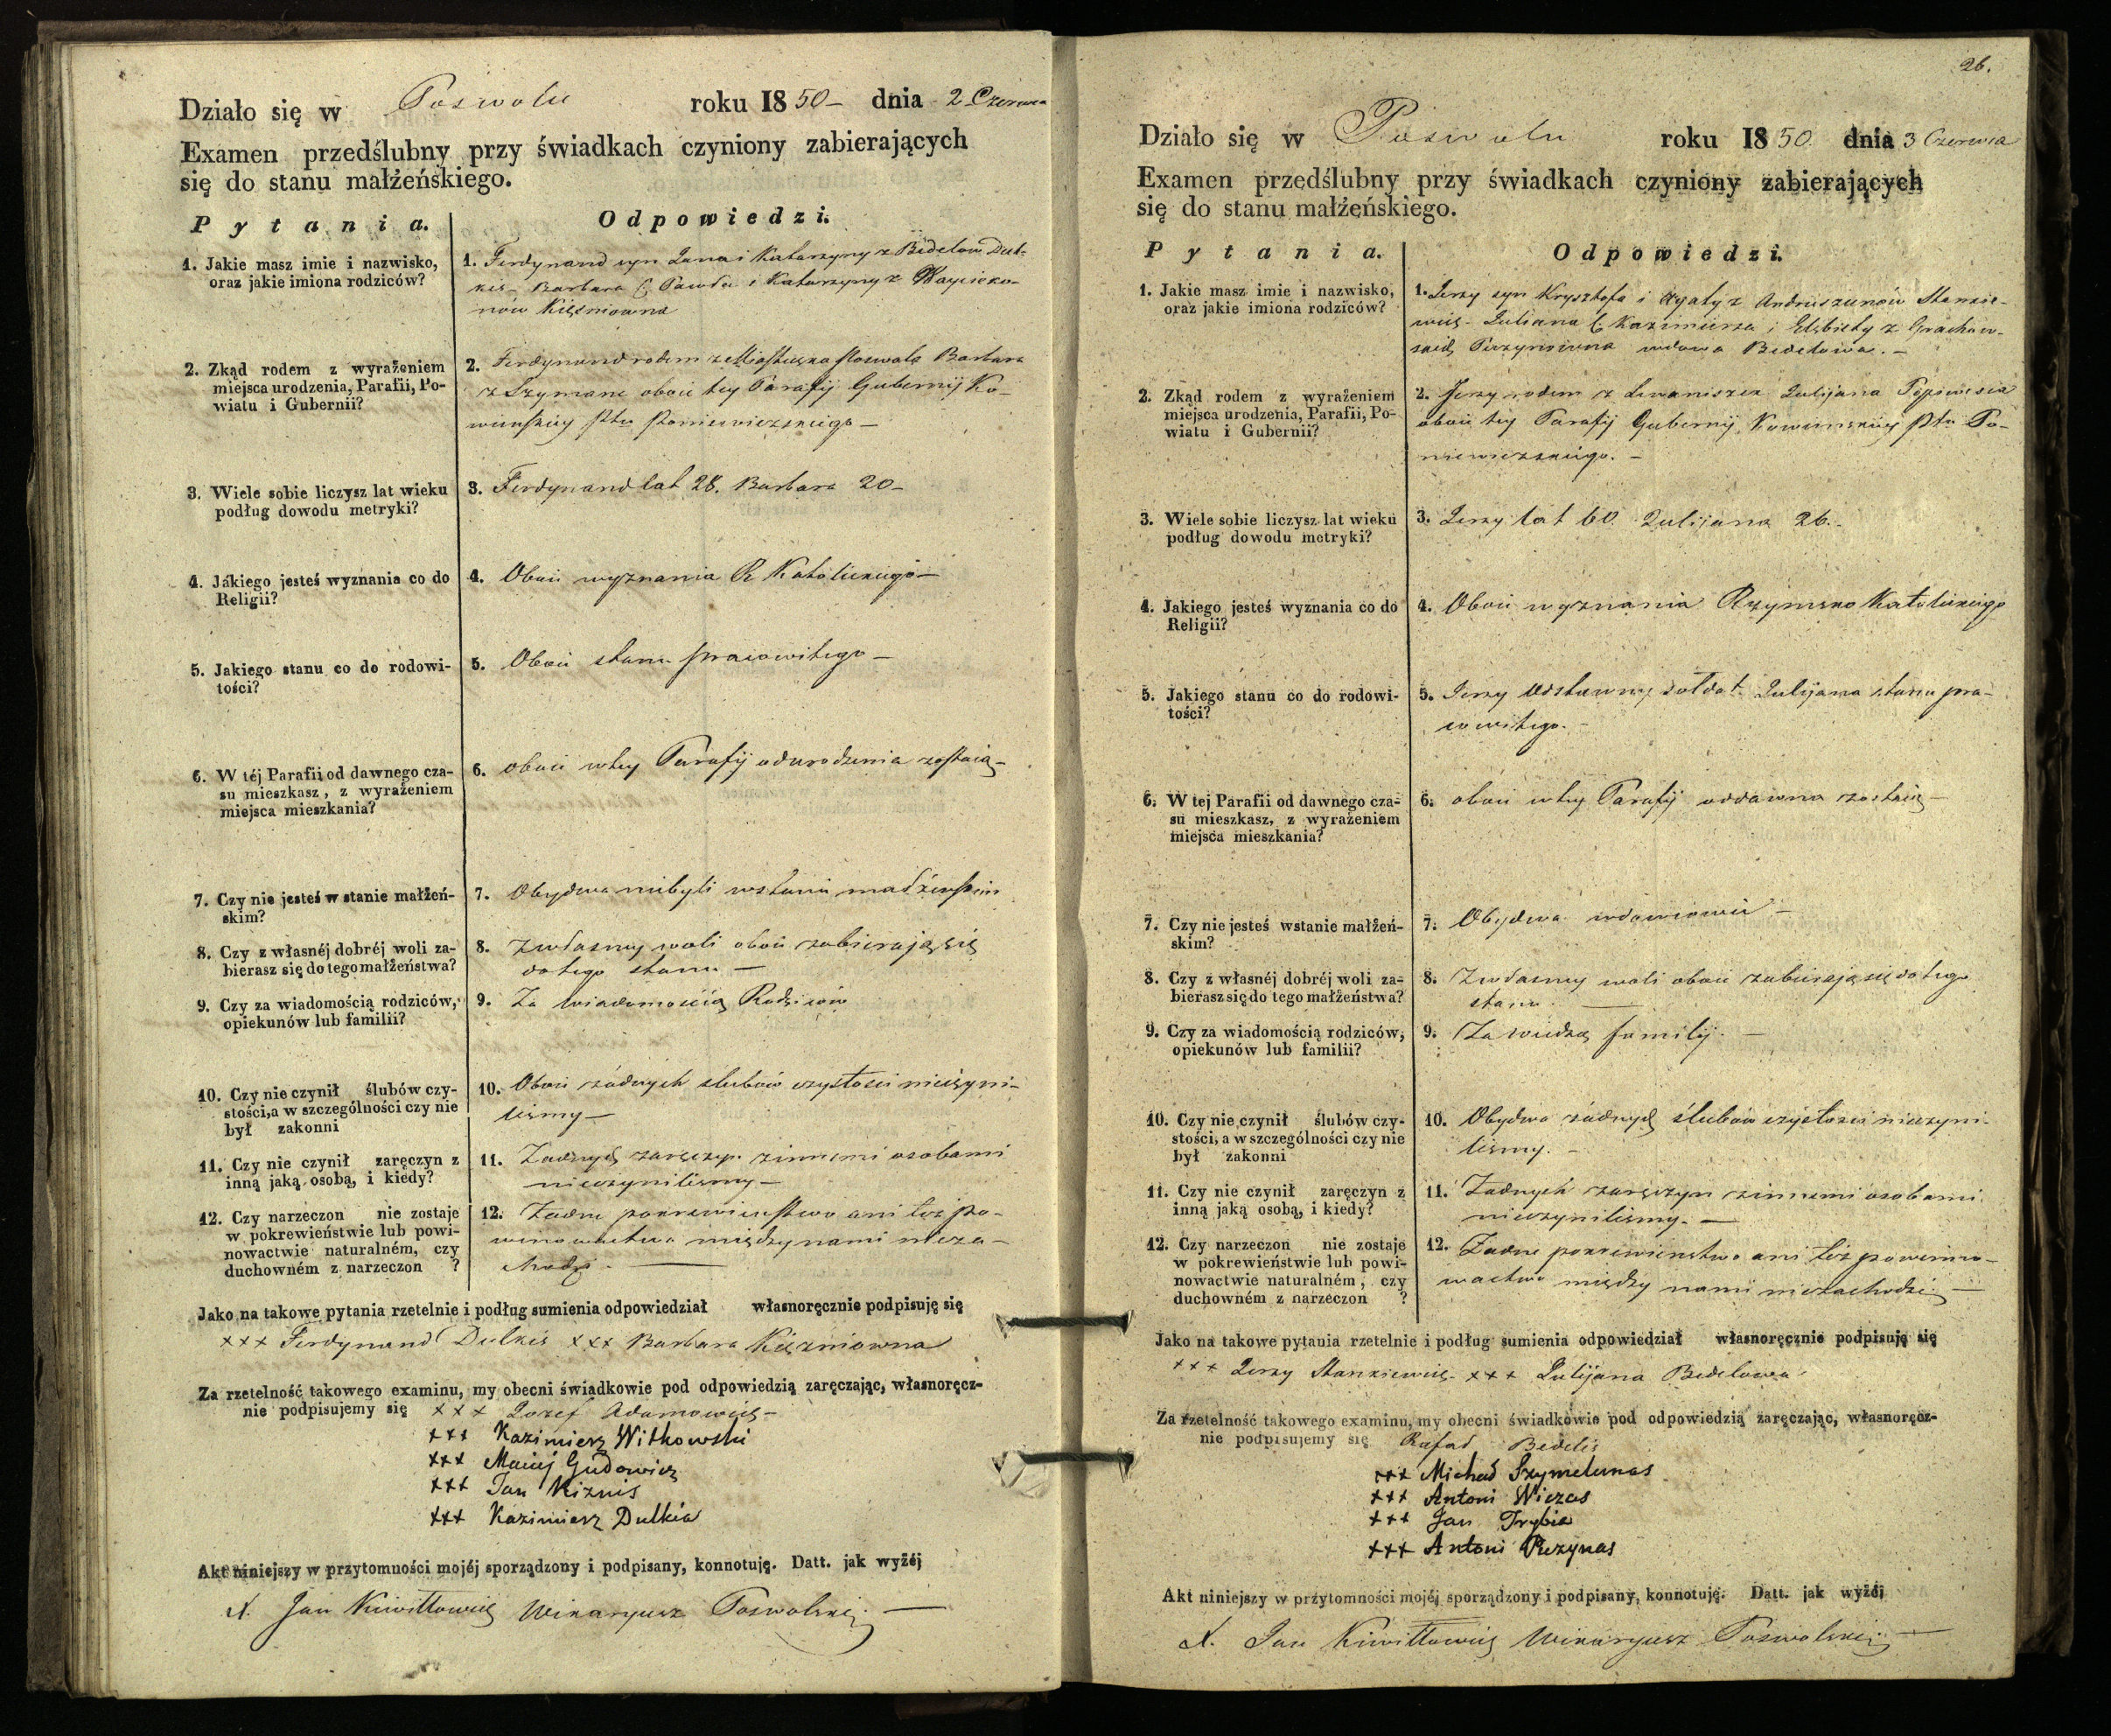 Działo się w Poswolu roku 1850 – dnia 2 Czerwca
Examen przedślubny przy świadkach czyniony zabierających
się do stanu małżeńskiego.
Pytania.
Odpowiedzi.
1. Jakie masz imie i nazwisko,
oraz jakie imiona rodziców?
1. Ferdynand syn Jana i Katarzyny z Bedelow Dul-
kis – Barbara C. Pawła i Katarzyny z
nów Kiźniowna
2. Zkąd rodem z wyrażeniem
miejsca urodzenia, Parafii, Po-
wiatu i Gubernii?
2. Ferdynand rodem z Miasteczka Poswola Barbara
z Szyman oboii tey Parafij Gubernij Ko-
wienskiey Pttu Poniewiezskiego –
3. Wiele sobie liczysz lat wieku
podług dowodu metryki?
3. Ferdynand lat 28. Barbara 20 –
4. Jakiego jesteś wyznania co do
Religii?
4. Oboii wyznania R Katolickiego –
5. Jakiego stanu co do rodowi-
tości?
5. Oboii stanu pracowitego –
6. W téj Parafii od dawnego cza-
su mieszkasz, z wyrażeniem
miejsca mieszkania?
6. oboii w tey Parafij od urodzenia zostaią –
7. Czy nie jesteś w stanie małżeń-
skim?
7. Obydwa niebyli w stanie małżenskim
8. Czy z własnéj dobréj woli za-
bierasz się do tego małżeństwa?
8. Z własney woli oboii zabierają się
do tego stanu –
9. Czy za wiadomością rodziców,
opiekunów lub familii?
9. Za wiadomością Rodziców
10. Czy nie czynił ślubów czy-
stości, a w szczególności czy nie
był zakonni
10. Oboii żadnych slubów czystosci nieczyni-
lismy –
11. Czy nie czynił zaręczyn z
inną jaką osobą, i kiedy?
11. Zadnych zaręczyn z innemi osobami
nieczynilismy –
12. Czy narzeczon nie zostaje
w pokrewieństwie lub powi-
nowactwie naturalném, czy
duchowném z narzeczon ?
12. Zadne pokrewienstwo ani też po-
winowactwo między nami nieza-
chodzi. –
Jako na takowe pytania rzetelnie i podług sumienia odpowiedział własnoręcznie podpisuję się
xxx Ferdynand Dulkis xxx Barbara Kiźniowna
Za rzetelność takowego examinu, my obecni świadkowie pod odpowiedzią zaręczając, własnoręcz-
nie podpisujemy się xxx Jozef Adamowicz –
xxx Kazimierz Witkowski
xxx Maciéj Gudowicz
xxx Jan Kiznis
xxx Kazimierz Dulkis
Akt niniejszy w przytomności mojéj sporządzony i podpisany, konnotuję. Datt. jak wyżéj
X. Jan Wikaryusz Poswolski. –
26.
Działo się w Poswolu roku 1850. dnia 3 Czerwca
Examen przedślubny przy świadkach czyniony zabierających
się do stanu małżeńskiego.
Pytania.
Odpowiedzi.
1. Jakie masz imie i nazwisko,
oraz jakie imiona rodziców?
1. Jerzy syn Krysztofa i Agaty z Andruszunów Stankie-
wicz – Juliana C. Kazimierza i Elżbiety z
wdowa Bedelowa. –
2. Zkąd rodem z wyrażeniem
miejsca urodzenia, Parafii, Po-
wiatu i Gubernii?
2. Jerzy rodem z Julijana
oboii tey Parafij Gubernij Kowienskiey Pttu Po-
niewiezskiego. –
3. Wiele sobie liczysz lat wieku
podług dowodu metryki?
3. Jerzy lat 60. Julijana 26. –
4. Jakiego jesteś wyznania co do
Religii?
4. Oboii wyznania Rzymsko Katolickiego
5. Jakiego stanu co do rodowi-
tości?
5. Jerzy Odstawny sołdat Julijana stanu pra-
cowitego. –
6. W tej Parafii od dawnego cza-
su mieszkasz, z wyrażeniem
miejsca mieszkania?
6. oboii w tey Parafij oddawna zostaią –
7. Czy nie jesteś wstanie małżeń-
skim?
7. Obydwa wdowcowie –
8. Czy z własnéj dobréj woli za-
bierasz się do tego małżeństwa?
8. Z własney woli oboii zabierają się do tego
stanu. –
9. Czy za wiadomością rodziców,
opiekunów lub familii?
9. Za wiedzą familij. –
10. Czy nie czynił ślubów czy-
stości, a w szczególności czy nie
był zakonni
10. Obydwa żadnych ślubów czystości nieczyni-
lismy. –
11. Czy nie czynił zaręczyn z
inną jaką osobą, i kiedy?
11. Żadnych zaręczyn z innemi osobami
nieczynilismy. –
12. Czy narzeczon nie zostaje
w pokrewieństwie lub powi-
nowactwie naturalném, czy
duchowném z narzeczon ?
12. Żadne pokrewienstwo ani też powinno-
wactwo między nami niezachodzi. –
Jako na takowe pytania rzetelnie i podług sumienia odpowiedział własnoręcznie podpisują się
xxx Jerzy Stankiewicz. xxx Julijana Bedelowa
Za rzetelność takowego examinu, my obecni świadkowie pod odpowiedzią zaręczając, własnoręcz-
nie podpisujemy się Rafał Bedelis
xxx Michał Szymelunas
xxx Antoni Wiczas
xxx Jan Trybis
xxx Antoni Puzynas
Akt niniejszy w przytomności mojéj sporządzony i podpisany, konnotuję. Datt. jak wyżéj
X. Jan Wikaryusz Poswolski. –